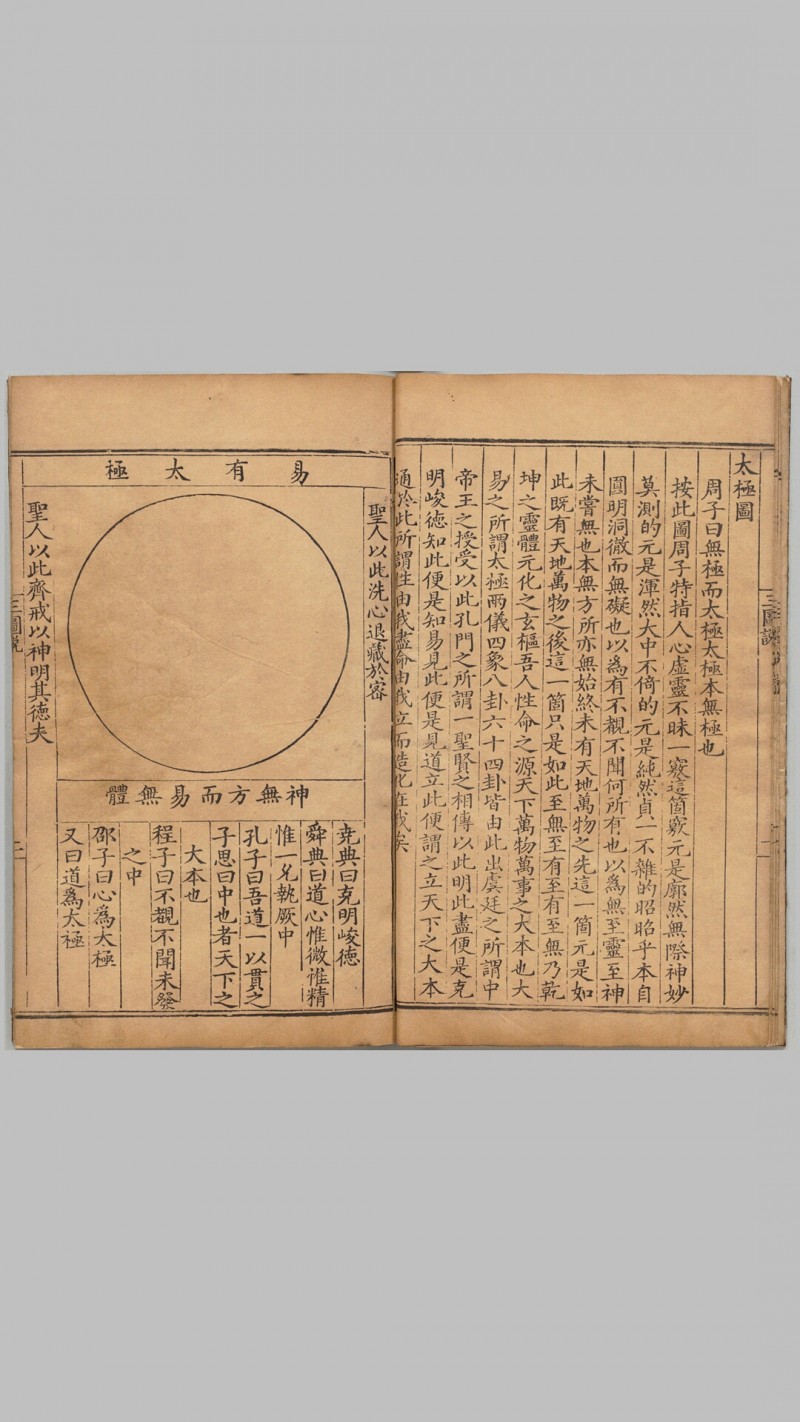 太極圖
周子曰無極而太極太極本無極也
按此圖周子特指人心虛靈不昧一竅這箇竅元是廓然無際神妙
莫測的元是渾然大中不倚的元是純然貞一不雜的昭昭乎本自
圓明洞徹而無礙也以為有不覩不聞何所有也以為無至靈至神
未嘗無也本無方所亦無始終未有天地萬物之先這一箇元是如
此既有天地萬物之後這一箇只是如此至無至有至有至無乃乾
坤之靈體元化之玄樞吾人性命之源天下萬物萬事之大本也大
易之所謂太極兩儀四象八卦六十四卦皆由此出虞廷之所謂中
帝王之授受以此孔門之所謂一聖賢之相傳以此明此盡便是克
明峻德知此便是知易見此便是見道立此便謂之立天下之大本
通於此所謂性由我盡命由我立而造化在我矣
三圖說
易有太極
聖人以此洗心退藏於密
聖人以此齊戒以神明其德夫
神無方而易無體
堯典曰克明峻德
舜典曰道心惟微惟精
惟一允執厥中
孔子曰吾道一以貫之
子思曰中也者天下之
大本也
程子曰不覩不聞未發
之中
邵子曰心爲太極
又曰道爲太極
三圖說
二